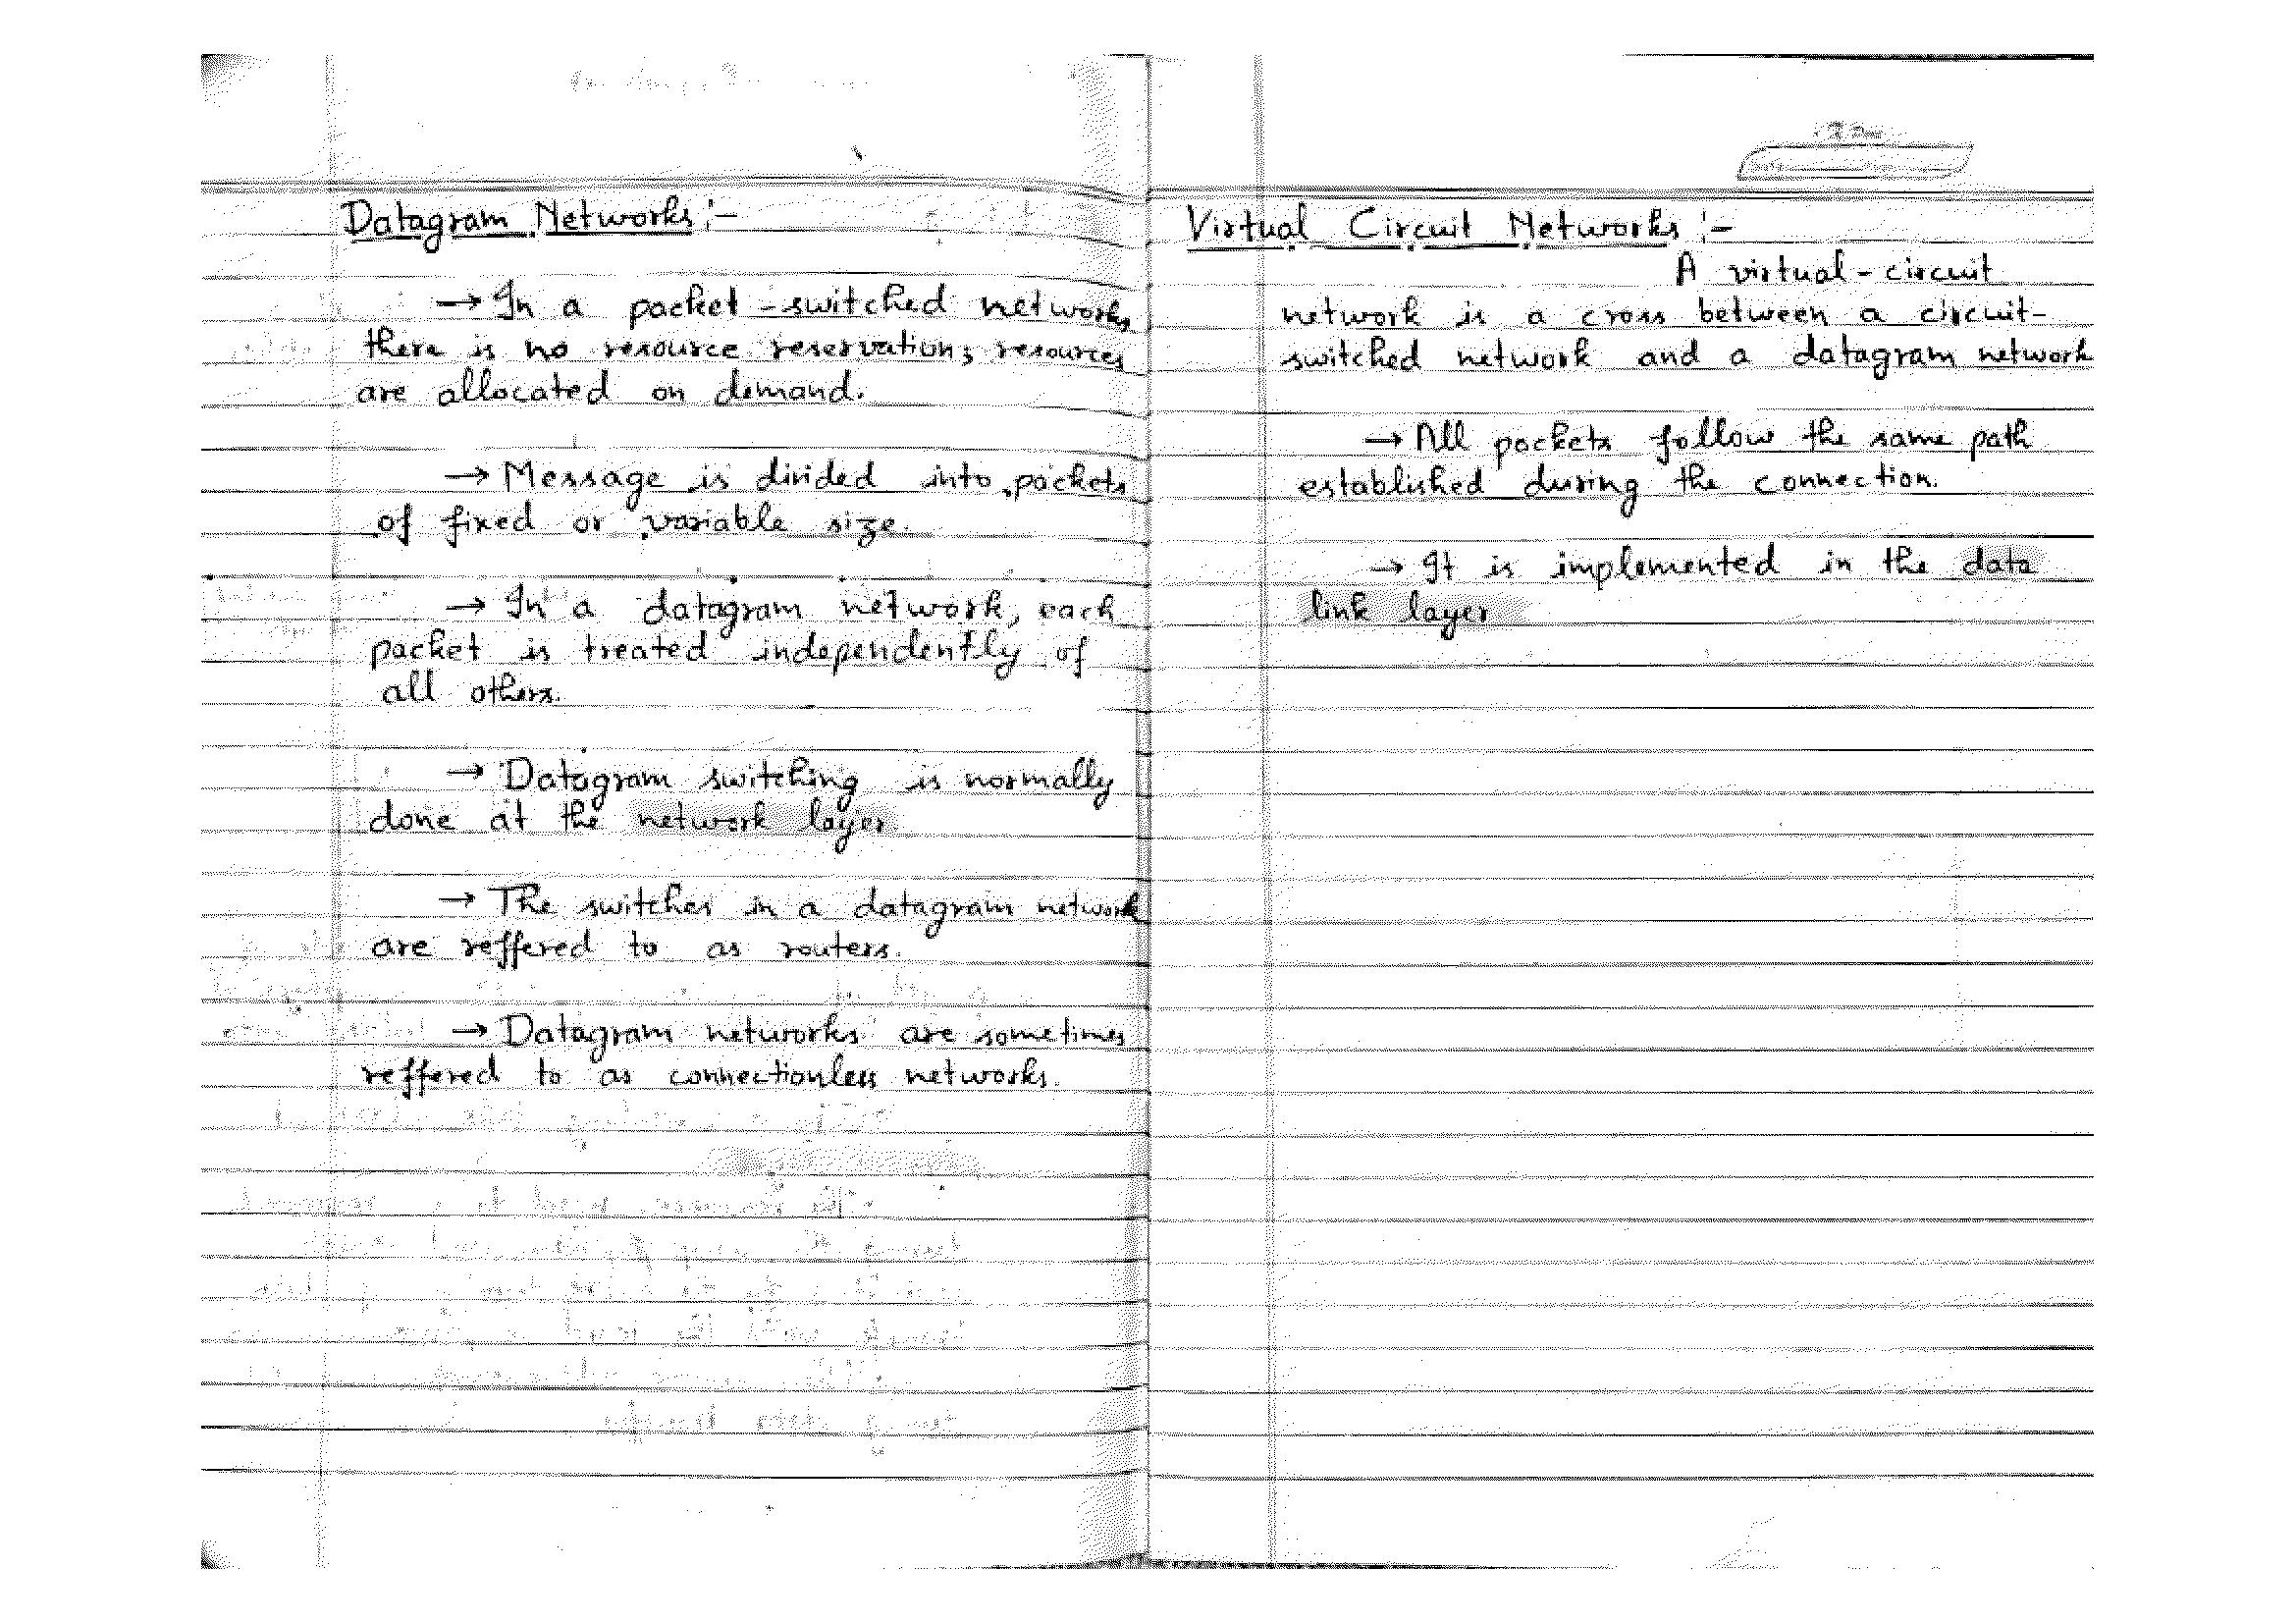 Datagram Networks :-
→ In a packet-switched networks
there is no resource reservation; resources
are allocated on demand.
→ Message is divided into packets
of fixed or variable size.
→ In a datagram network, each
packet is treated independently of
all others.
→ Datagram switching is normally
done at the network layer
→ The switches in a datagram network
are reffered to as routers.
→ Datagram networks are sometimes
reffered to as connectionless networks.
Virtual Circuit Networks :-
A virtual-circuit
network is a cross between a circuit-
switched network and a datagram network
→ All packets follow the same path
established during the connection.
→ It is implemented in the data
link layer